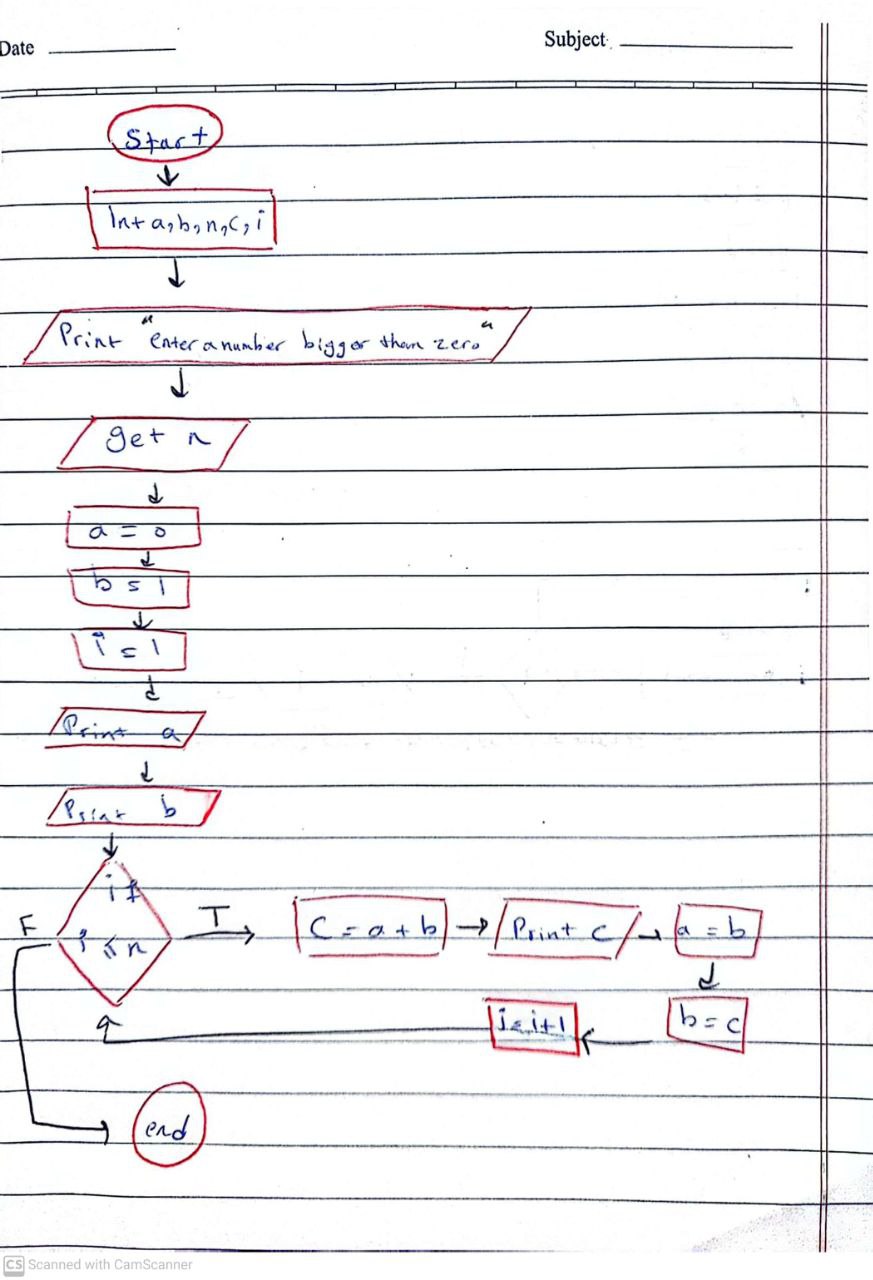 Date
Subject
Start
Int a, b, n, c, i
Print "enter a number bigger than zero"
get n
a = 0
b = 1
i = 1
Print a
Print b
if
i ≤ n
F
T
C = a + b
Print c
a = b
b = c
i = i+1
end
CS Scanned with CamScanner